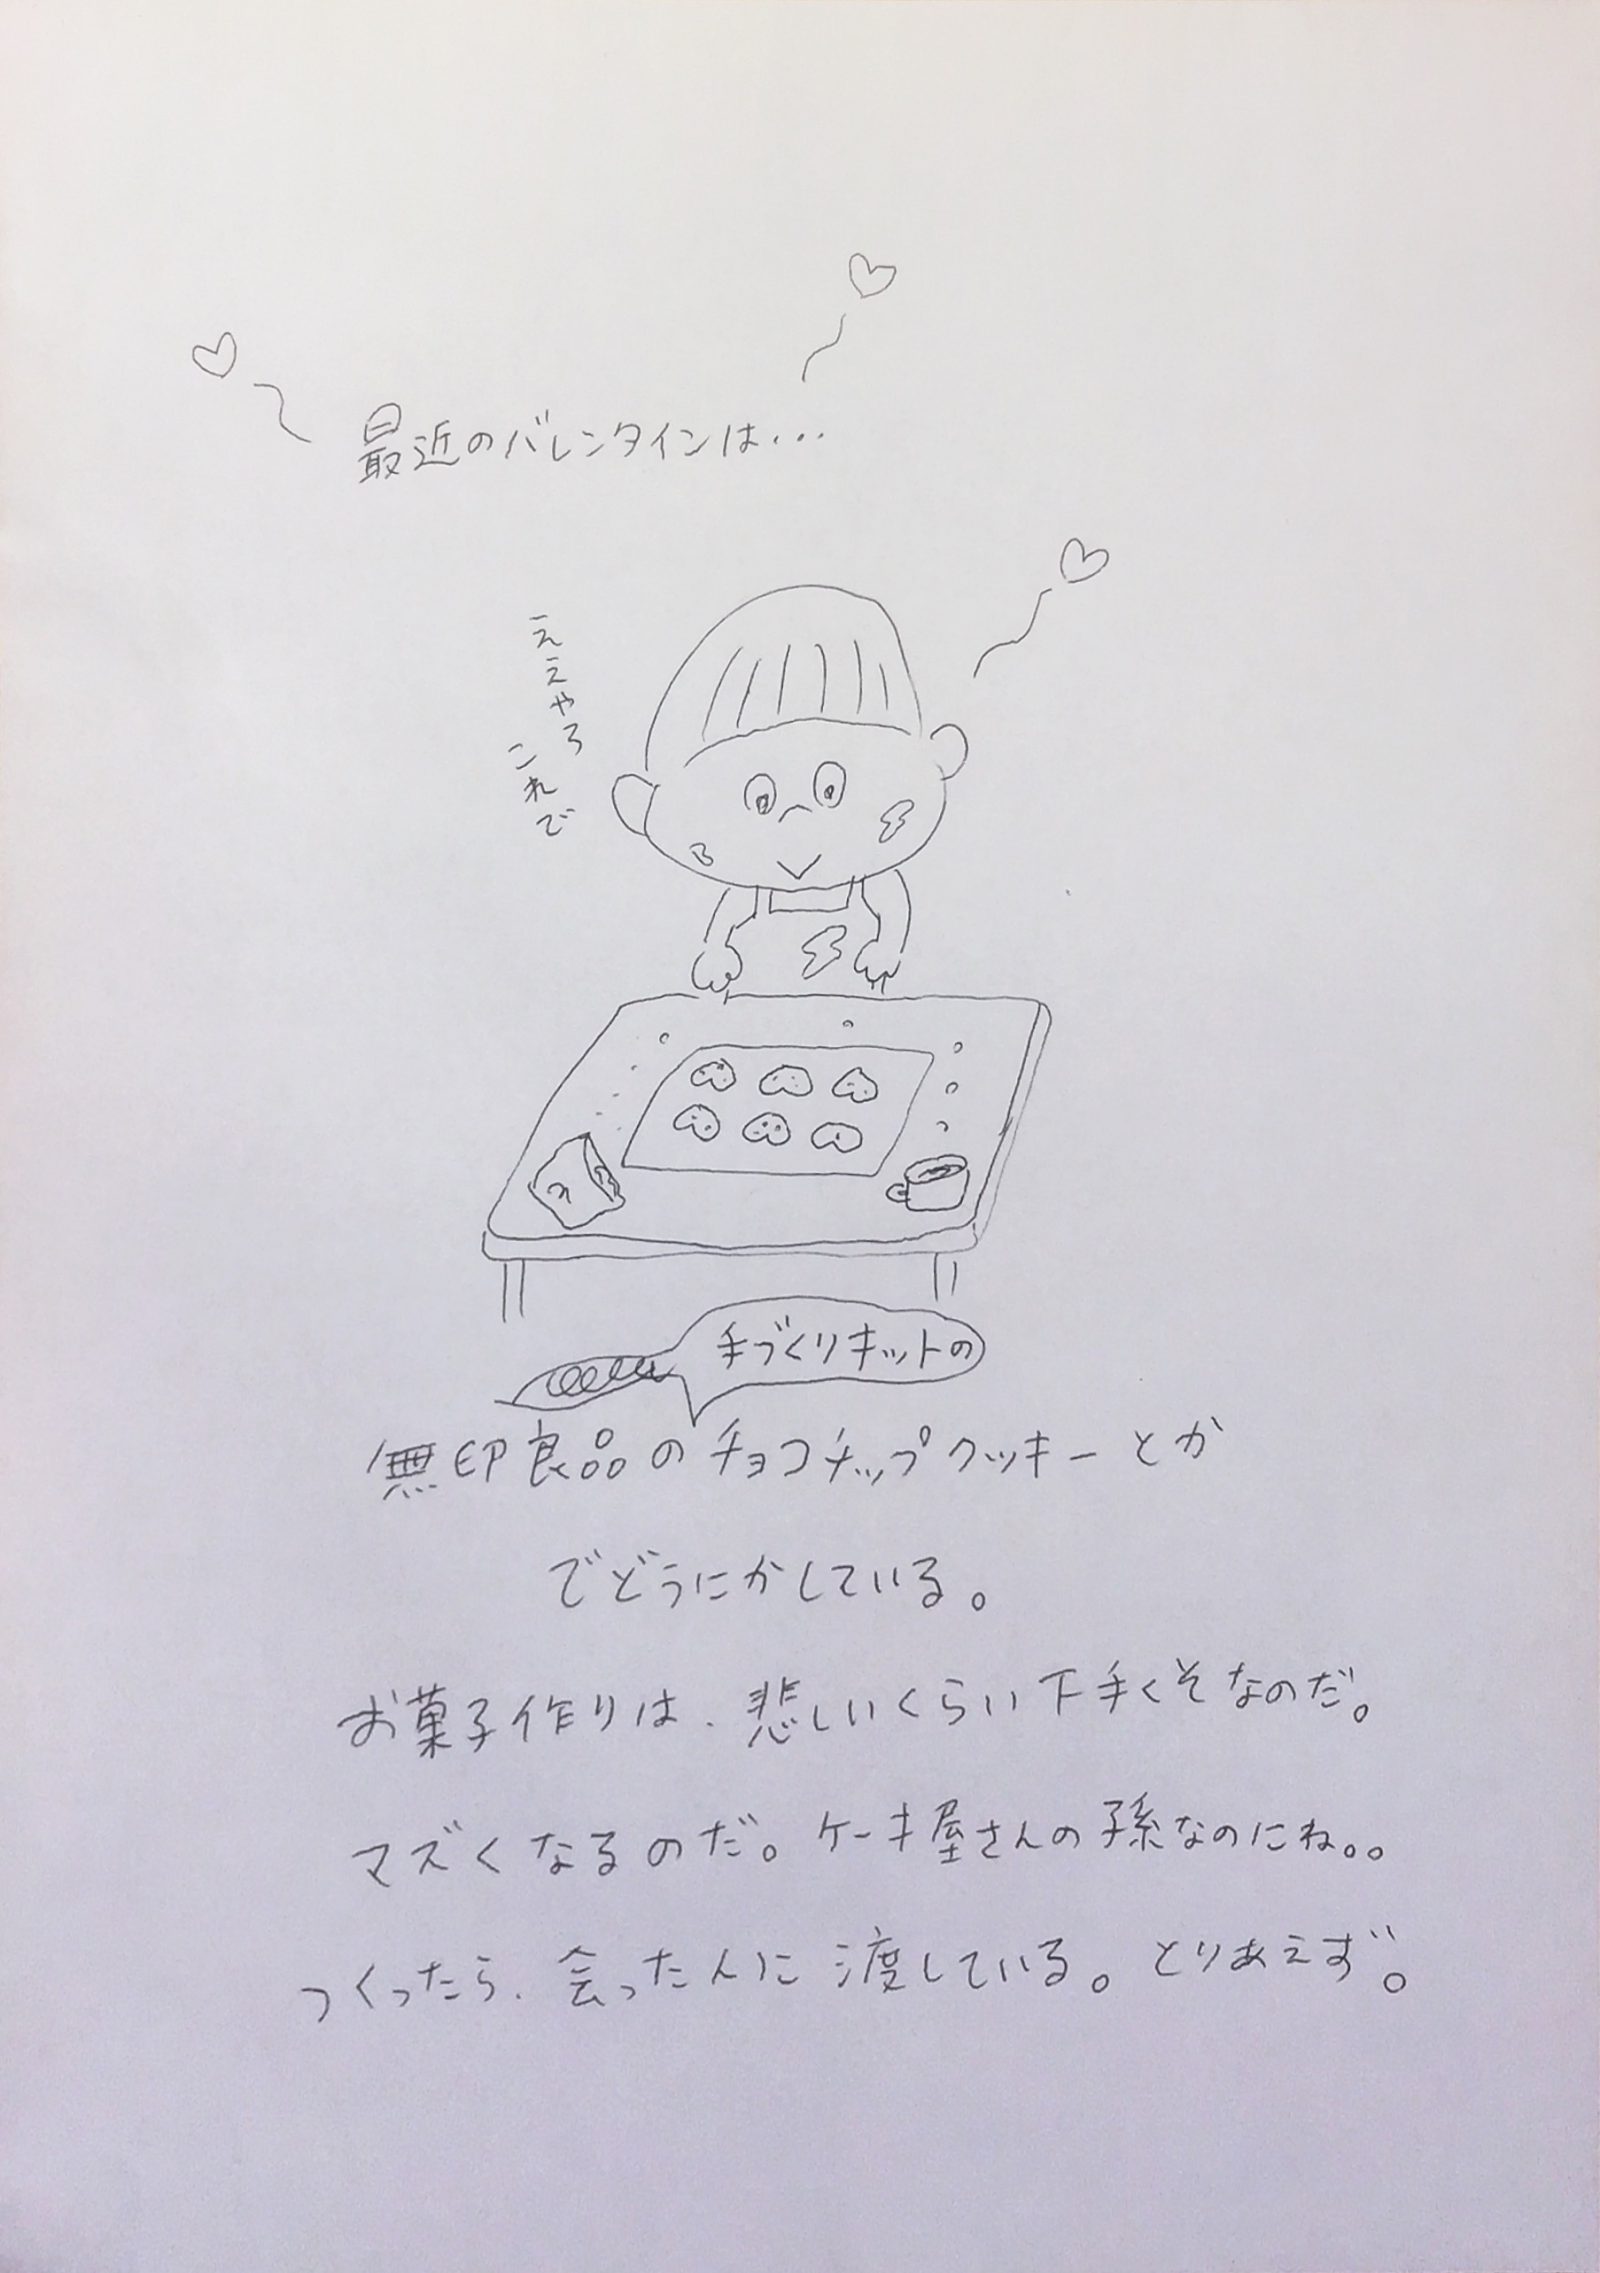 最近のバレンタインは...
ええやろ
これで
手づくりキットの
無印良品のチョコチップクッキーとか
でどうにかしている。
お菓子作りは、悲しいくらい下手くそなのだ。
マズくなるのだ。ケーキ屋さんの孫なのにね。。
つくったら、会った人に渡している。とりあえず。